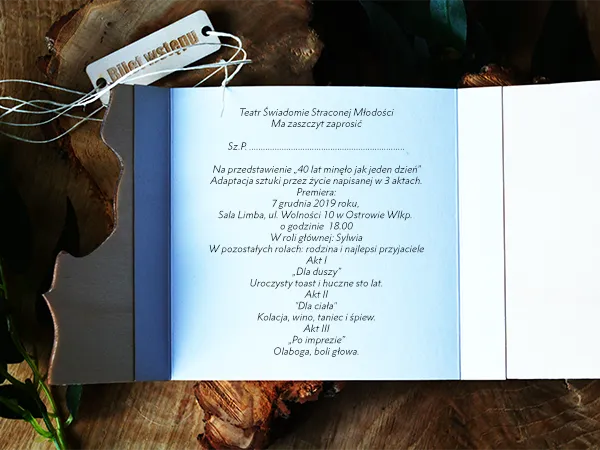 Bilet wstępu
Teatr Świadomie Straconej Młodości
Ma zaszczyt zaprosić
Sz.P. ............................................................
Na przedstawienie „40 lat minęło jak jeden dzień”
Adaptacja sztuki przez życie napisanej w 3 aktach.
Premiera:
7 grudnia 2019 roku,
Sala Limba, ul. Wolności 10 w Ostrowie Wlkp.
o godzinie 18.00
W roli głównej: Sylwia
W pozostałych rolach: rodzina i najlepsi przyjaciele
Akt I
„Dla duszy”
Uroczysty toast i huczne sto lat.
Akt II
"Dla ciała"
Kolacja, wino, taniec i śpiew.
Akt III
„Po imprezie”
Olaboga, boli głowa.